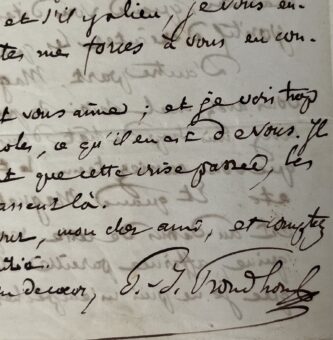 et s'il y a lieu, je vous en-
tes me forces à vous en con-
t vous aime; et je vois trop
oles, ce qu'il en est de vous. Il
t que cette crise passée, les
asseur là.
mon cher ami, et comptez
tié.
decœur, P.-J. Proudhon